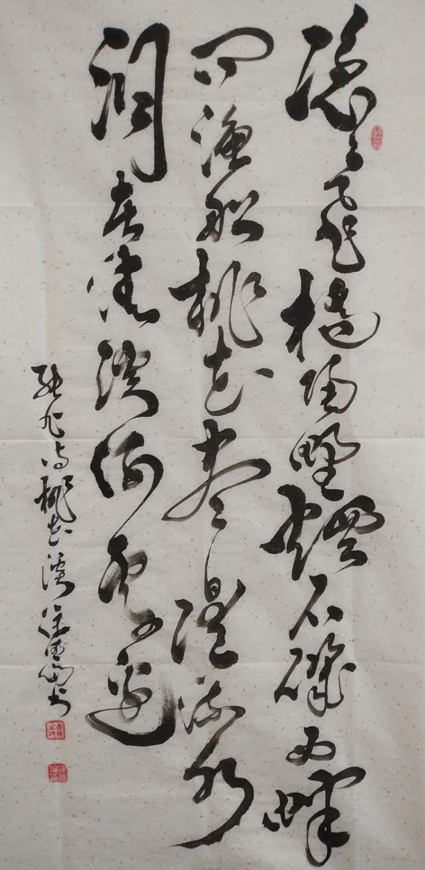 隱隱飛橋隔野煙石磯西畔
問漁船桃花盡日隨流水
洞在清溪何處邊
張旭詩桃花溪